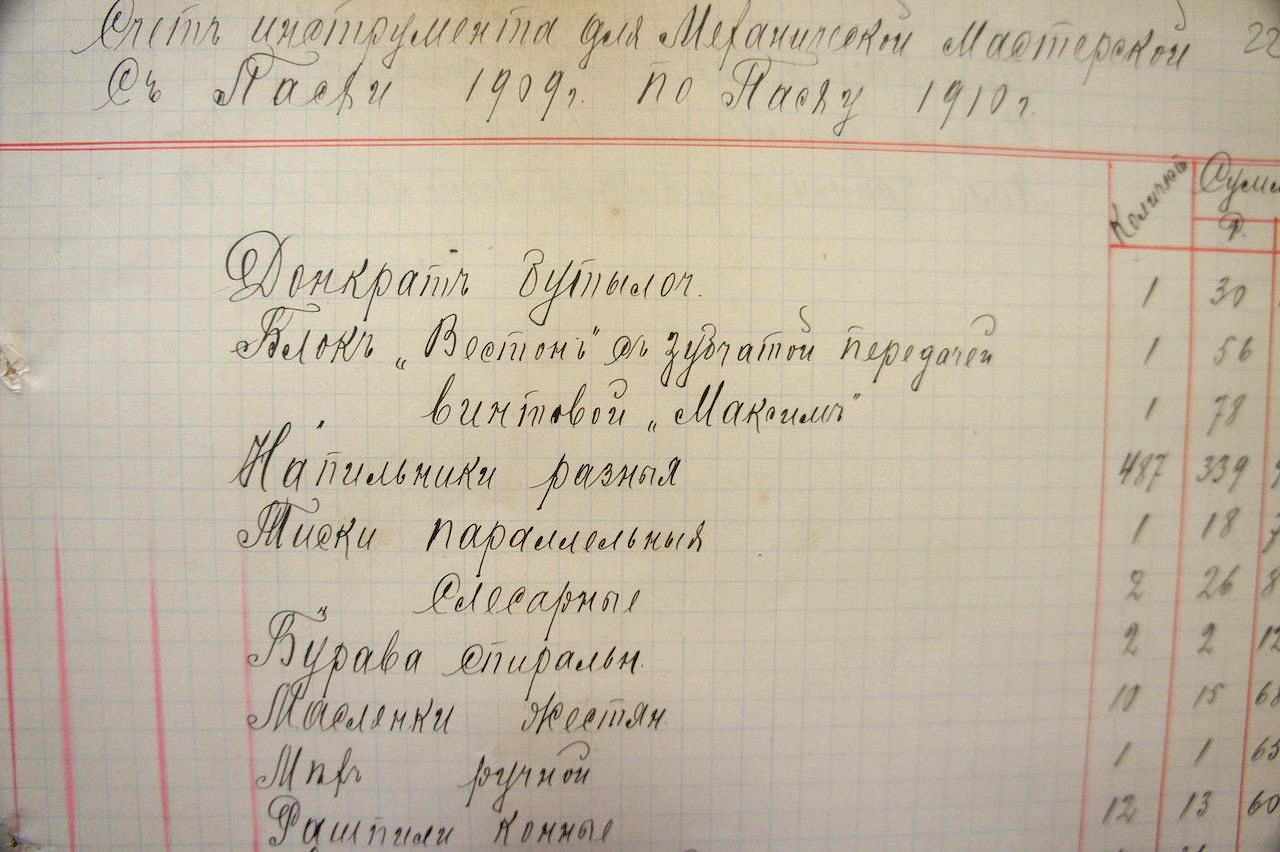 Счетъ инструмента для Механической Мастерской 22
Съ Пасхи 1909г. по Пасху 1910г.
Количест Сумм
Р.
Донкратъ бутылоч. 1 30
Блокъ „Вестонъ" съ зубчатой передачей 1 56
" винтовой „Максимъ" 1 78
Напильники разныя 487 339
Тиски параллельныя 1 18
" слесарные 2 26 8
Бурава спиральн. 2 2 12
Масленки жестян 10 15 68
ручной 1 1 65
Рашпили конные 12 13 60